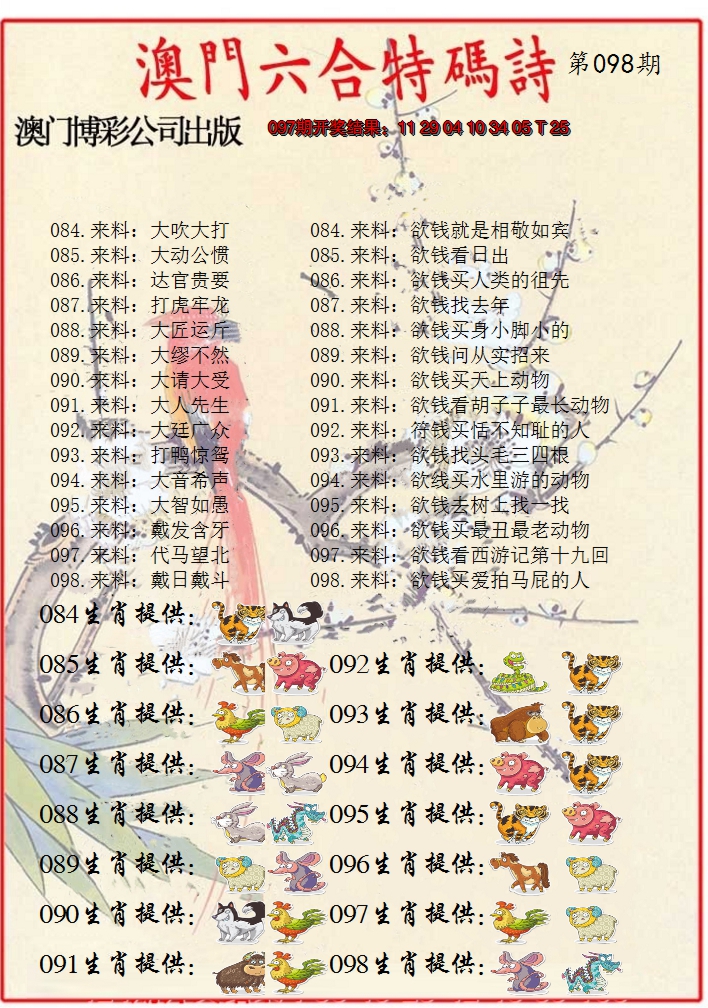 澳門六合特碼詩 第098期
澳门博彩公司出版 097期开奖结果：11 29 04 10 34 05 T 25
084.来料：大吹大打 084.来料：欲钱就是相敬如宾
085.来料：大动公惯 085.来料：欲钱看日出
086.来料：达官贵要 086.来料：欲钱买人类的徂先
087.来料：打虎牢龙 087.来料：欲钱找去年
088.来料：大匠运斤 088.来料：欲钱买身小脚小的
089.来料：大缪不然 089.来料：欲钱问从实招来
090.来料：大请大受 090.来料：欲钱买天上动物
091.来料：大人先生 091.来料：欲钱看胡子子最长动物
092.来料：大廷广众 092.来料：符钱买恬不知耻的人
093.来料：打鸭惊鸳 093.来料：欲钱找头毛三四根
094.来料：大音希声 094.来料：欲线买水里游的动物
095.来料：大智如愚 095.来料：欲钱去树上找一找
096.来料：戴发含牙 096.来料：欲钱买最丑最老动物
097.来料：代马望北 097.来料：欲钱看西游记第十九回
098.来料：戴日戴斗 098.来料：欲钱买爱拍马屁的人
084生肖提供：
085生肖提供： 092生肖提供：
086生肖提供： 093生肖提供：
087生肖提供： 094生肖提供：
088生肖提供： 095生肖提供：
089生肖提供： 096生肖提供：
090生肖提供： 097生肖提供：
091生肖提供： 098生肖提供：